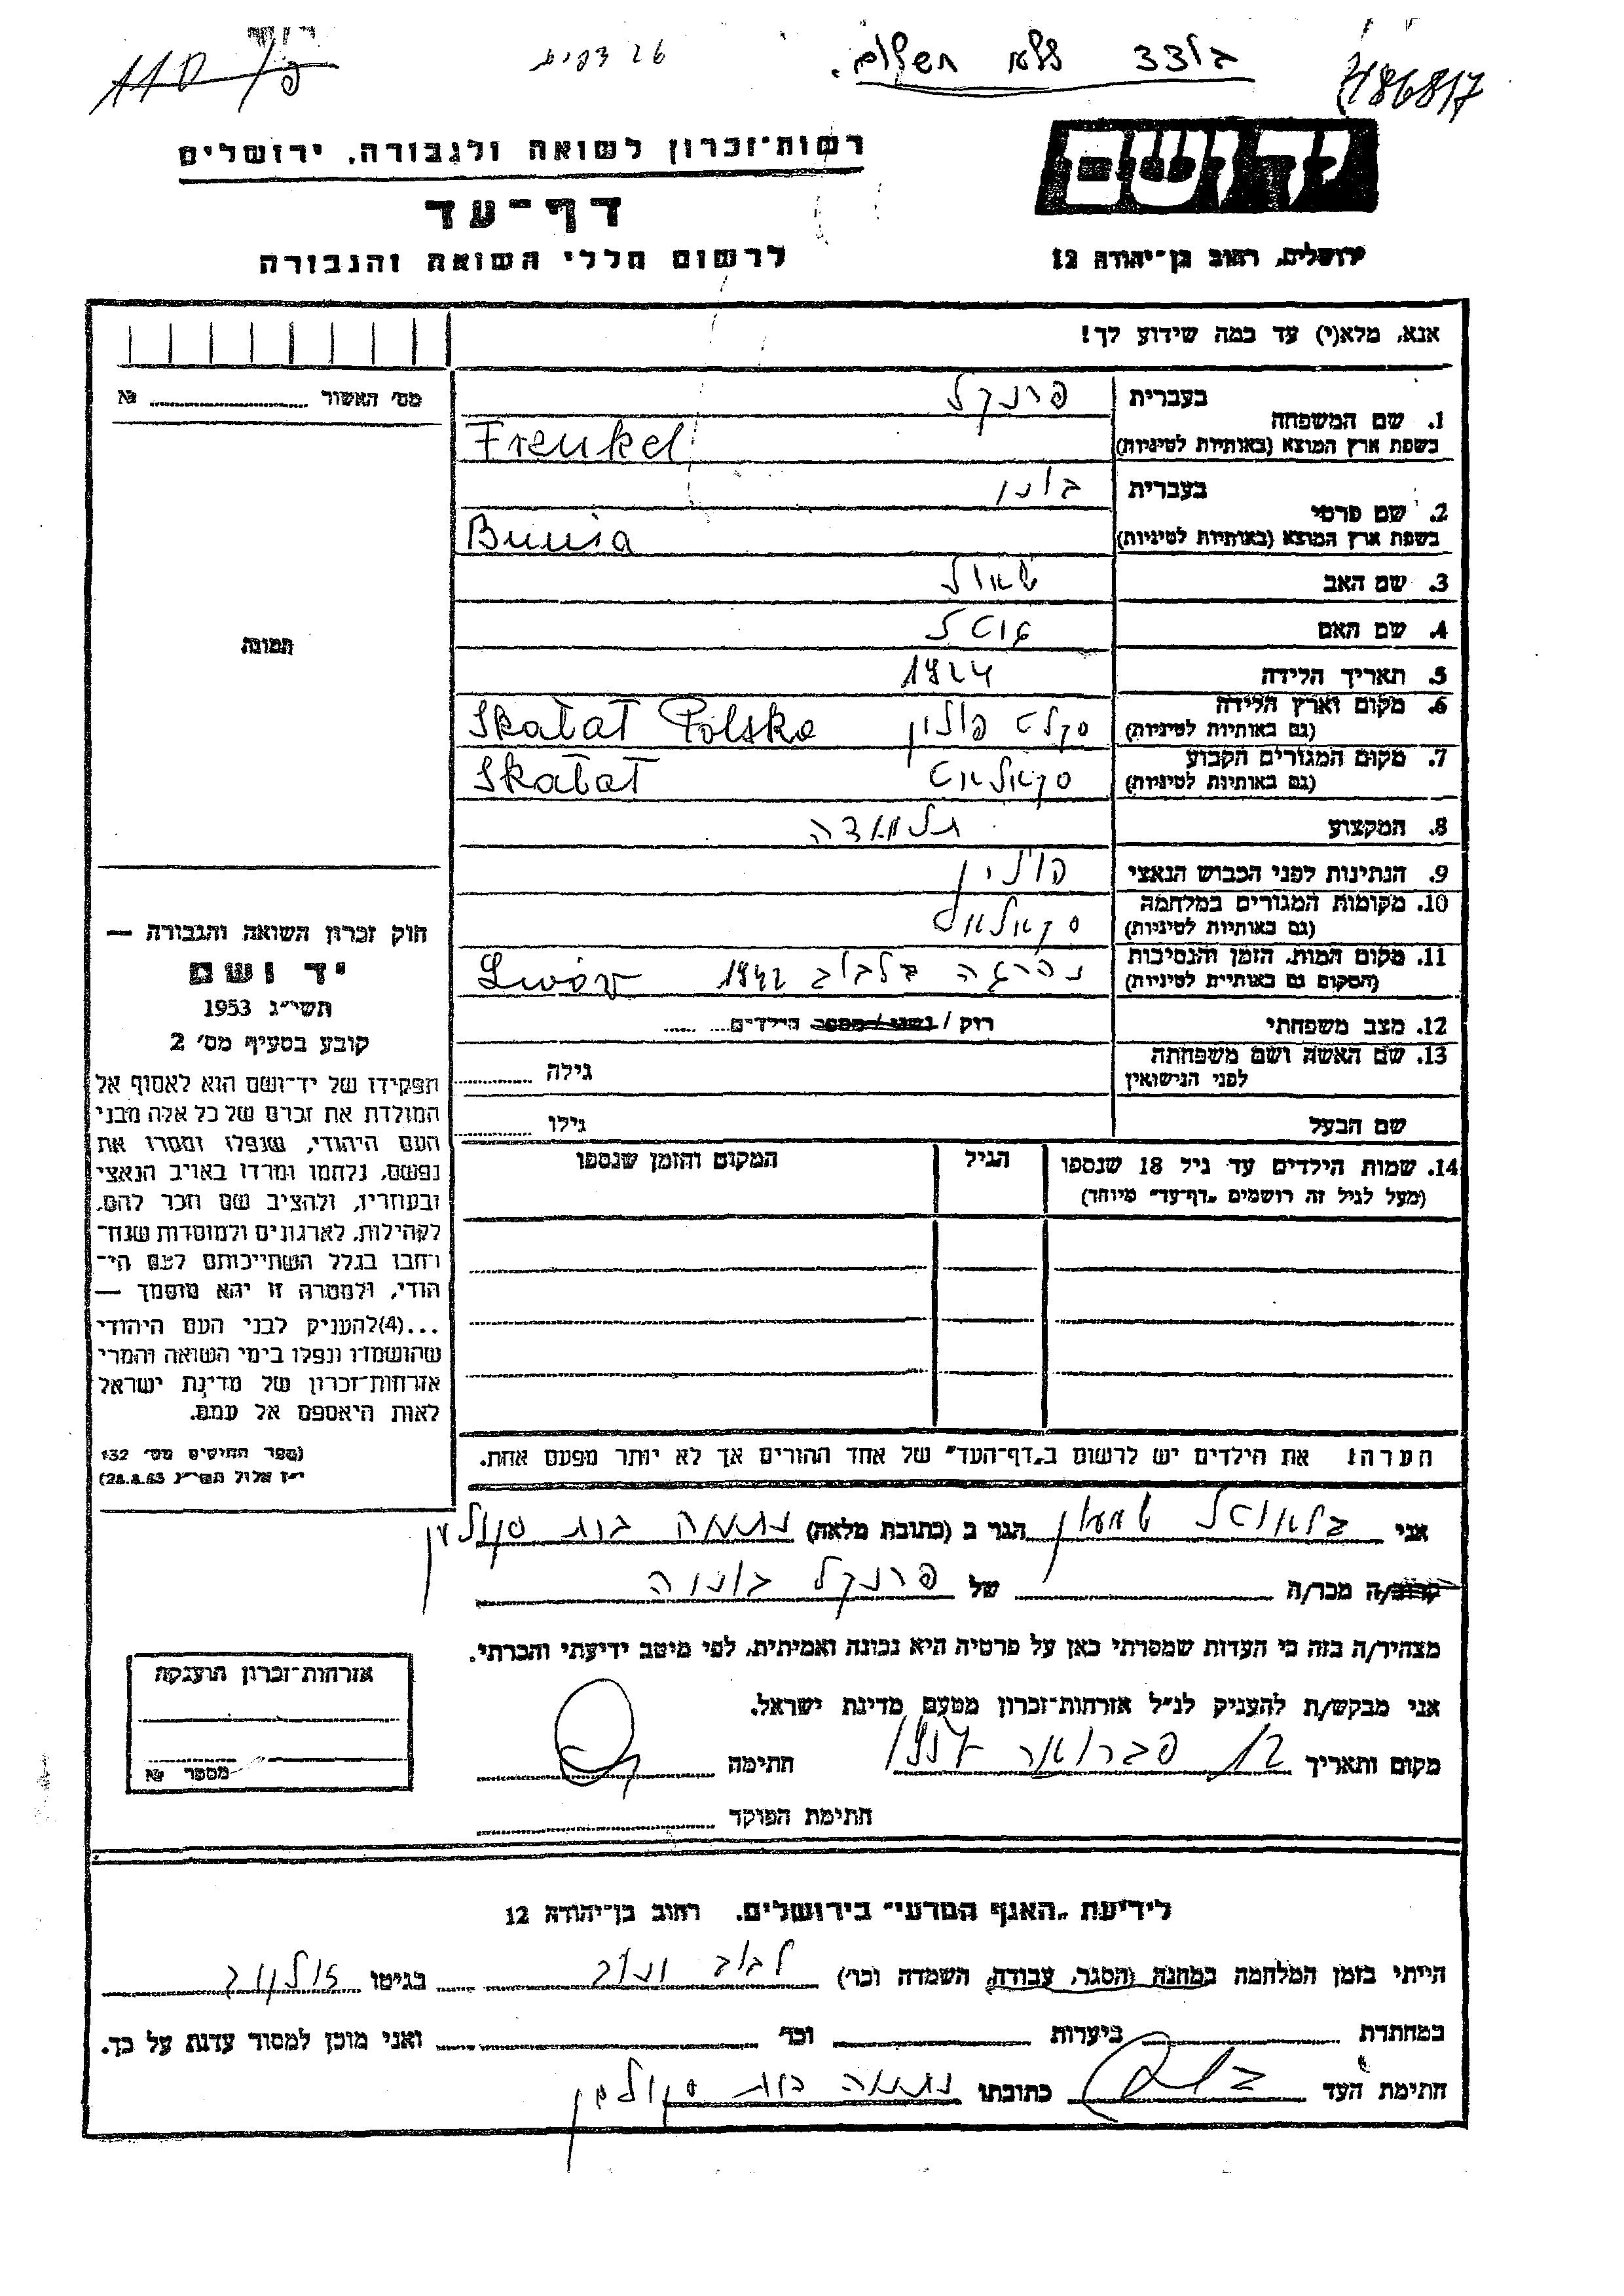 בוצע ללא תשלום.
26 דפים
486817
יד ושם
רשות־זכרון לשואה ולגבורה, ירושלים
דף־עד
לרשום חללי השואה והגבורה
ירושלים, רחוב בן־יהודה 12
אנא, מלא(י) עד כמה שידוע לך!
מס׳ האשור № 
1. שם המשפחה
בעברית פרנקל
בשפת ארץ המוצא (באותיות לטיניות) Frenkel
2. שם פרטי
בעברית
בשפת ארץ המוצא (באותיות לטיניות) Bunia
3. שם האב שאול
4. שם האם
5. תאריך הלידה 1924
6. מקום וארץ הלידה סקלט פולין Skałat Polska
(גם באותיות לטיניות)
7. מקום המגורים הקבוע סקאלאט Skałat
(גם באותיות לטיניות)
8. המקצוע תלמידה
9. הנתינות לפני הכבוש הנאצי פולין
10. מקומות המגורים במלחמה סקאלאט
(גם באותיות לטיניות)
11. מקום המות, הזמן והנסיבות נהרגה בלבוב 1942 Lwów
(המקום גם באותיות לטיניות)
12. מצב משפחתי רוק / נשוי / מספר הילדים
13. שם האשה ושם משפחתה גילה
לפני הנישואין
שם הבעל גילו
14. שמות הילדים עד גיל 18 שנספו הגיל המקום והזמן שנספו
(מעל לגיל זה רושמים „דף־עד״ מיוחד)
הערה: את הילדים יש לרשום ב„דף־העד״ של אחד ההורים אך לא יותר מפעם אחת.
תמונה
חוק זכרון השואה והגבורה —
יד ושם
תשי״ג 1953
קובע בסעיף מס׳ 2
תפקידו של יד־ושם הוא לאסוף אל
המולדת את זכרם של כל אלה מבני
העם היהודי, שנפלו ומסרו את
נפשם, נלחמו ומרדו באויב הנאצי
ובעוזריו, ולהציב שם וזכר להם,
לקהילות, לארגונים ולמוסדות שנח־
רבו בגלל השתייכותם לעם הי־
הודי, ולמטרה זו יהא מוסמך —
...(4)להעניק לבני העם היהודי
שהושמדו ונפלו בימי השואה והמרי
אזרחות־זכרון של מדינת ישראל
לאות היאספם אל עמם.
(ספר החוקים מס׳ 132
י״ז אלול תשי״ג 28.8.53)
אני שמעון הגר ב (כתובת מלאה)
קרוב/ה מכר/ה של פרנקל בוניה
מצהיר/ה בזה כי העדות שמסרתי כאן על פרטיה היא נכונה ואמיתית, לפי מיטב ידיעתי והכרתי.
אני מבקש/ת להעניק לנ״ל אזרחות־זכרון מטעם מדינת ישראל.
מקום ותאריך 12 פברואר 1957 חתימה
חתימת הפוקד
אזרחות־זכרון הוענקה
מספר №
לידיעת „האגף המדעי״ בירושלים, רחוב בן־יהודה 12
הייתי בזמן המלחמה במחנה (הסגר, עבודה, השמדה וכו׳) לבוב ינוב בגיטו
במחתרת ביערות וכו׳ ואני מוכן למסור עדות על כך.
חתימת העד כתובתו